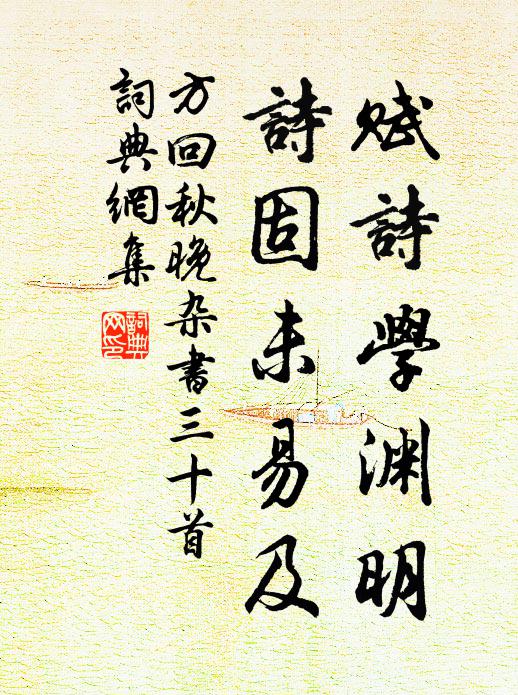 赋詩學渊明
詩固未易及
方回秋晚杂書三十首
詞典網集
詞典網印